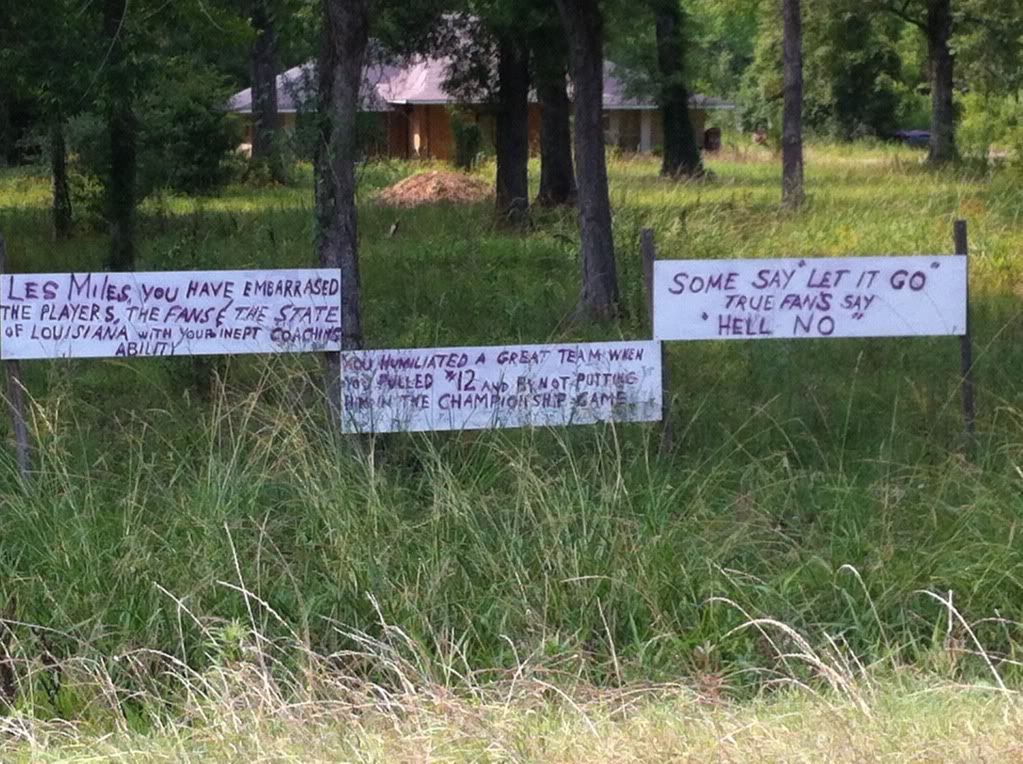 LES MILES, YOU HAVE EMBARRASED
THE PLAYERS, THE FANS & THE STATE
OF LOUISIANA WITH YOUR INEPT COACHING
ABILITY
YOU HUMILIATED A GREAT TEAM WHEN
YOU PULLED #12 AND BY NOT PUTTING
HIM IN THE CHAMPIONSHIP GAME
SOME SAY "LET IT GO"
TRUE FAN'S SAY
"HELL NO"